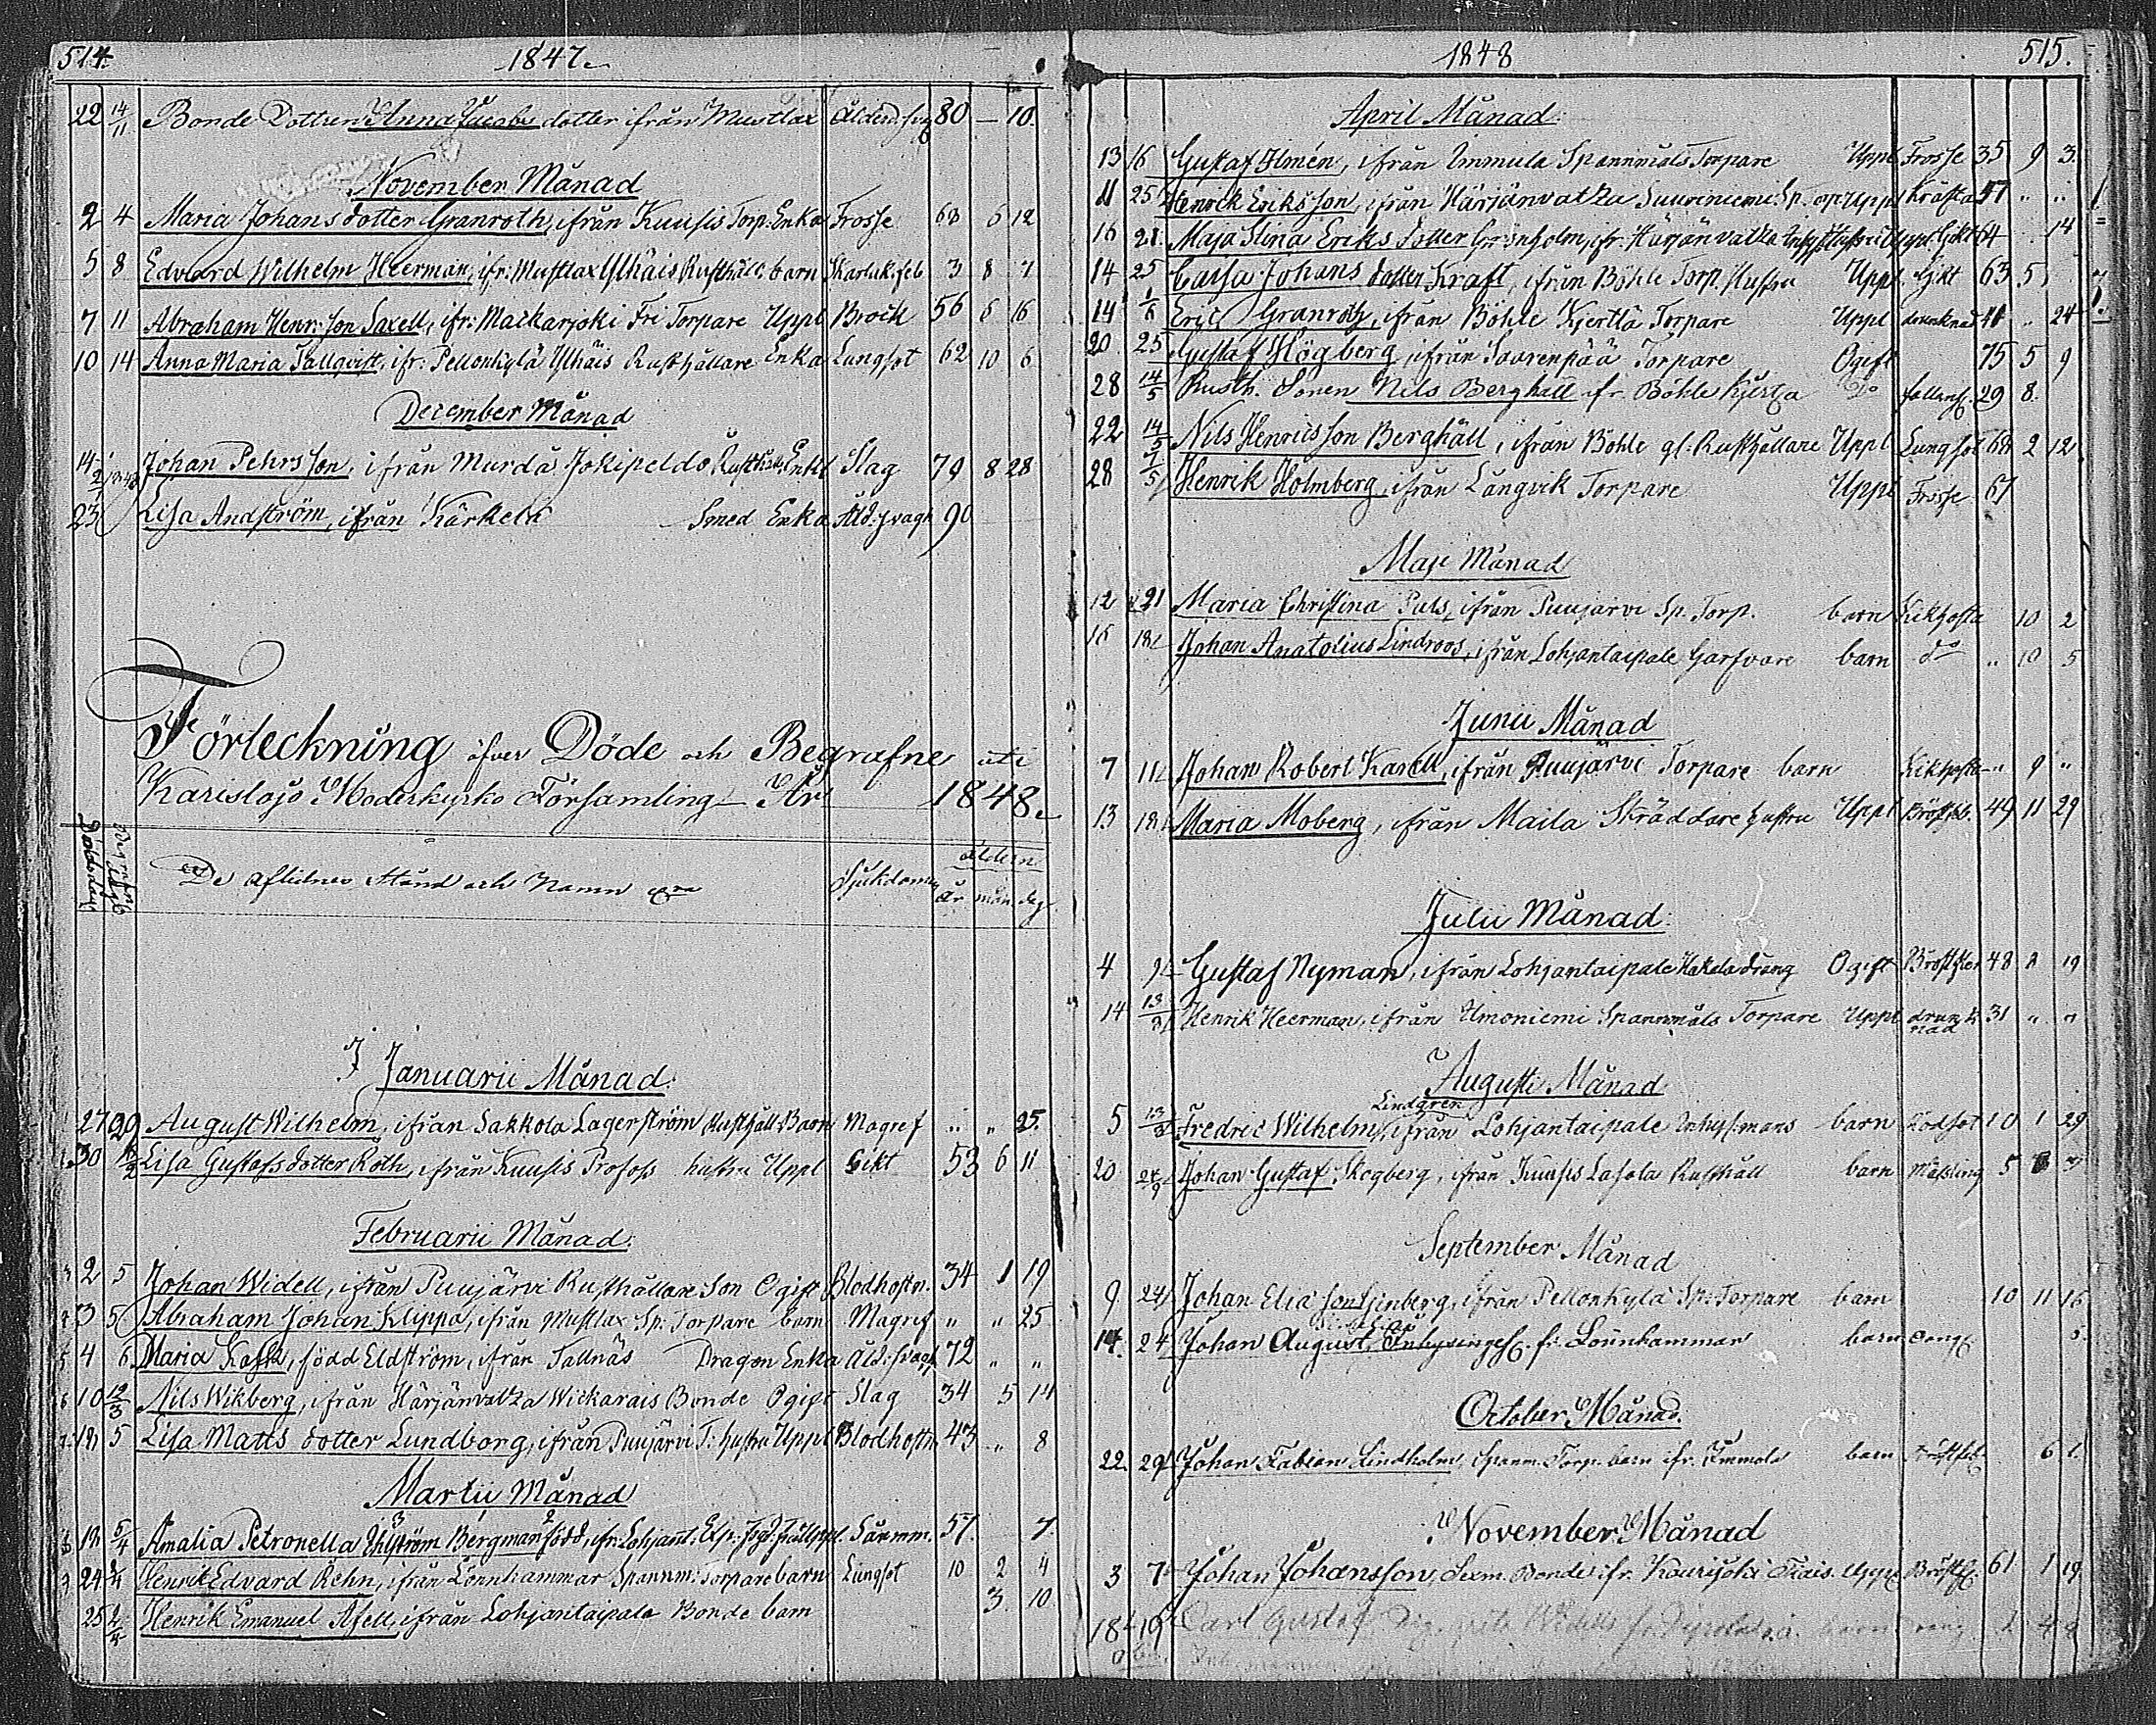 514.
1847.
22 14/11 Bonde Dottren Anna Jacobs dotter ifrån Mustlax Ålderd.svag 80 — 10.
November Månad
2 4 Maria Johans dotter Granroth, ifrån Kuusis Torp. Enka Frosse 68 6 12
5 8 Edvard Wilhelm Heerman, ifr: Mustlax Ylhäis Rusthåll: barn Skarlak.feb 3 8 7
7 11 Abraham Henr: son Saxell, ifr: Maikarjoki Fri Torpare Uppl Bråck 56 6 16
10 14 Anna Maria Tallqvist, ifr: Pellonkylä Ylhäis Rusthållare Enka Lungsot 62 10 6
December Månad
14 2/1 1848 Johan Pehrs son, ifrån Murdå Jokipeldo, Rusth: Enkl Slag 79 8 28
23 Lisa Andström, ifrån Kärkelä Smed Enka Åld:svagh 90
Förteckning öfver Döde och Begrafne uti
Karislojo Moderkyrko Församling År 1848.
Dödsdag
Begrafn. dag
De aflidnes Stånd och Namn Sjukdomen åldern
år mån. dag
I Januarii Månad.
1 27 29 August Wilhelm, ifrån Sakkola Lagerström Rusthåll: Barn Magref „ „ 25.
30 /2 Lisa Gustafs dotter Roth, ifrån Kuusis Profoss hustru Uppl Gikt 53 6 11
Februarii Månad.
3 2 5 Johan Widell, ifrån Puujärvi Rusthållare Son Ogift Blodhostn. 34 1 19
4 3 5 Abraham Johan Klippa, ifrån Mustlax Sp: Torpare barn Magref „ „ 25
5 4 6 Maria Kask, född Eldström, ifrån Tallnäs Dragon Enka Åld:svagh 72 „ „
6 10 12/3 Nils Wikberg, ifrån Härjänvatza Wickarais Bonde Ogift Slag 34 5 14
7 18 5 Lisa Matts dotter Lundborg, ifrån Puujärvi T: hustru Uppl Blodhostn 43 „ 8
Martii Månad
18 5/4 Amalia Petronella Uhlström Bergman född, ifr: Lohjant: 57. 7
24 2/4 Henrik Edvard Rehn, ifrån Lönnhammar Spannm: Torpare barn Lungsot 10 2 4
25 2/4 Henrik Emanuel Asell, ifrån Lohjantaipale Bonde barn 3 10
1848
515.
April Månad.
13 16 Gustaf Almén, ifrån Immula Spannmåls Torpare Uppl Frosse 35 9 3.
11 25 Henrik Eriks son, ifrån Härjänvatza Suuriniemi Sp. Uppl Kräfta 47 „ „
16 21. Maja Stina Eriks dotter Grönholm, ifr. Härjänvatza Uppl. Gikt 64 14
14 25 Caisa Johans dotter Kraft, ifrån Böhle Torp. Hustru Uppl Gikt 63 5
14 1/6 Eric Granroth, ifrån Böhle Kjertlä Torpare Uppl drunknad 41 „ 24
20 25 Gustaf Högberg, ifrån Saarenpää Torpare Ogift 75 5 9
28 14/5 Rusth. Sonen Nils Berghäll ifr. Böhle Do 29 8.
22 14/5 Nils Henriks son Berghäll, ifrån Böhle gl. Rusthållare Uppl Lungsot 68 2 12
28 7/5 Henrik Holmberg, ifrån Långvik Torpare Uppl Frosse 67
Maji Månad
12 21 Maria Christina Puls, ifrån Puujärvi Sp. Torp. barn Kikhosta 10 2
15 18 Johan Anatolius Lindroos, ifrån Lohjantaipale Garfvare barn do „ 10 5
Junii Månad
7 11 Johan Robert Karell, ifrån Puujärvi Torpare barn Kikhosta „ 9 „
13 18 Maria Moberg, ifrån Maila Skräddare hustru Uppl Bröstfeb. 49 11 29
Julii Månad.
4 9 Gustaf Nyman, ifrån Lohjantaipale Hakala dräng Ogift 48 2 19
14 13/8 Henrik Heerman, ifrån Umoniemi Spannmåls Torpare Uppl drunknad 31 „ „
Augusti Månad
Lindgren
5 13/8 Fredric Wilhelm, ifrån Lohjantaipale Inhysimans barn Rödsot 10 1 29
20 24/9 Johan Gustaf Skogberg, ifrån Kuusis Lassola Rusthåll barn Mässling 5
September Månad
9 24 Johan Elia son Ljinberg, ifrån Pellonkylä Sp: Torpare barn 10 11 16
14. 24 Johan August, fr. Lönnhammar barn 5.
October Månad.
22. 29 Johan Fabian Lindholm, Spanm. Torp. barn ifr. Immola barn Bröstfeb. 6 1.
November Månad
3 7 Johan Johansson, Sexm. Bonde ifr. Kourijoki Uppl 61 1 19
18 19 Carl Gustaf